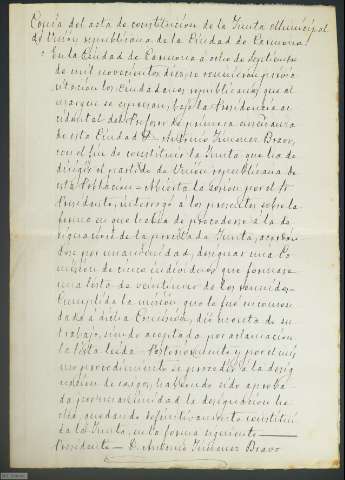 Copia del acta de constitución de la Junta Municipal
de Unión republicana de la Ciudad de Carmona
En la Ciudad de Carmona á ocho de Septiembre
de mil novecientos tres, se reunieron previa
citacion los ciudadanos republicanos que al
margen se expresan, bajo la Presidencia ac
cidental del Profesor de primera enseñanza
de esta Ciudad D. Antonio Jimenez Bravo,
con el fin de constituir la Junta que ha de
dirigir el partido de Unión republicana de
esta Poblacion = Abierta la sesion por el Sr
Presidente, interrogó á los presentes sobre la
forma en que habia de procederse á la de
signacion de la precitada Junta, acordán
dose por unanimidad, designar una Co
misión de cinco individuos que formase
una lista de veintinueve de los reunidos.=
Cumplida la misión que le fué encomen
dada á dicha Comisión, dió cuenta de su
trabajo, siendo aceptado por aclamación
la lista leida = Posteriormente y por el mis
mo procedimiento se procedió á la desig
nacion de cargos, habiendo sido aproba
da por unanimidad la designación he
cha, quedando definitivamente constitui
da la Junta, en la forma siguiente
Presidente = D. Antonio Jimenez Bravo